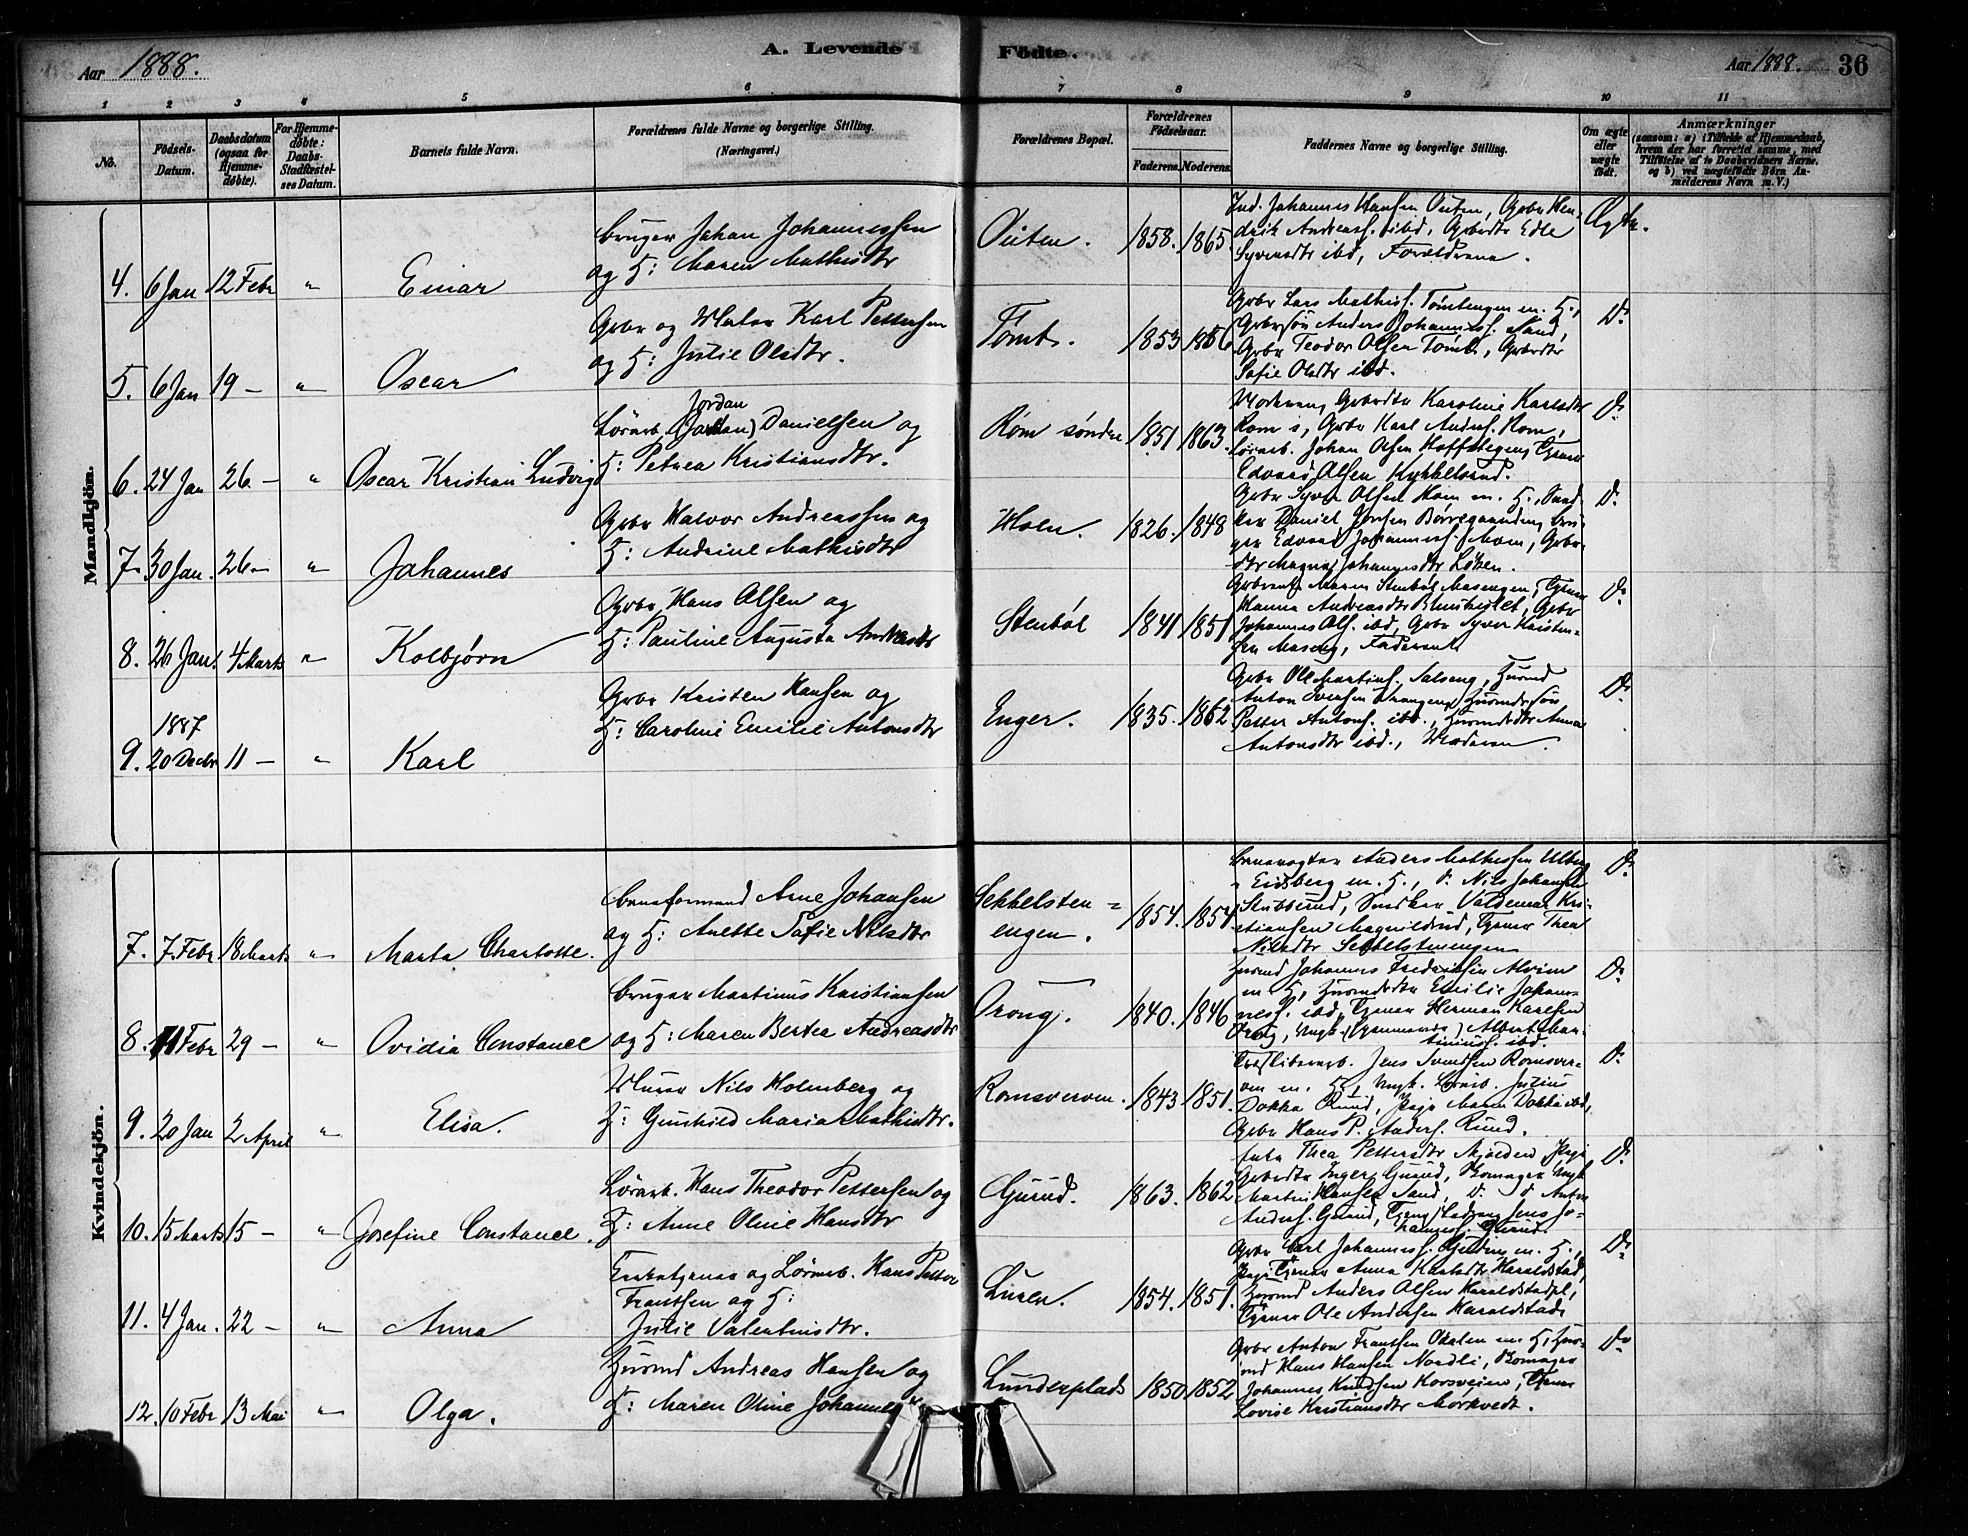 Aar 1888.
A. Levende Födte.
Aar 1888. 36
1 2 3 4 5 6 7 8 9 10 11
No.
Födsels-Datum.
Daabsdatum (ogsaa for Hjemme-døbte).
For Hjemme-døbte: Daabs-Stadfæstel-ses Datum.
Barnets fulde Navn.
Forældrenes fulde Navne og borgerlige Stilling. (Næringsvei.)
Forældrenes Bopæl.
Forældrenes Födselsaar.
Faderens. Moderens.
Faddernes Navne og borgerlige Stilling.
Om ægte eller uægte födt.
Anmærkninger
(saasom: a) i Tilfælde af Hjemmedaab,
hvem der har forrettet samme, med
Tilföielse af to Daabsvidners Navne.
og b) ved uægtefödte Börn An-
melderens Navn m. V.)
Mandkjön.
4. 6 Jan 12 Febr " Einar
bruger Johan Johannessen
og H: Maren Mathisdtr
Outen. 1858. 1865
Ind. Johannes Hansen Outen, Gbr Hen-
drik Andreass. ibid, Gbrdtr Edle
Syversdtr ibd, Forældrene.
Ægte.
5. 6 Jan 19 — " Oscar
Gbr og Maler Karl Pettersen
og H: Julie Olsdtr.
Tomt. 1853 1856
Gbr Lars Mathiss. Tomtengen m. H.,
Gbrsøn Anders Johanness. Sand,
Gbr Teodor Olsen Tomt, Gbrdtr
Sofie Olsdtr ibd.
Do
6. 24 Jan 26 — " Oscar Kristian Ludvig
Jordan
Lörarb. (Johan) Danielsen og
H: Petrea Kristiansdtr.
Rom söndre 1851 1863.
Moderen, Gbrdtr Karoline Karlsdtr
Rom s, Gbr Karl Anders. Rom,
Lörarb. Johan Olsen, Tjener
Edvard Olsen Kykkelsrud.
Do
7. 30 Jan. 26 — " Johannes
Gbr Halvor Andreassen og
H: Andrine Mathisdtr
Moen. 1826. 1848
Gbr Syver Olsen Mom m. H., Sned-
ker Daniel Jonsen, bru-
ger Edvard Johanness. Mom, Gbr-
dtr Magna Johannesdtr Löken.
Do
8. 26 Jan. 4 Marts " Kolbjørn
Gbr Hans Olsen og
H: Pauline Augusta Andreasdtr
Stenböl 1841 1851
Maren Stenböl Masengen, Tjener
Hanna Andreasdtr, Gbr
Johannes Ols. ibd, Gbr Syver Kristen-
sen Maseng, Faderen
Do
1887
9. 20 Decbr 11 — " Karl
Gbr Kristen Hansen og
H: Caroline Emilie Antonsdtr
Enger. 1835. 1862.
Gbr Ole Martins. Salseng, Husmd
Anton Svensen, Husmdssøn
Petter Antons. ibd., Husmdsdtr Anna
Antonsdtr ibd., Moderen.
Do
Kvindekjön.
7. 7 Febr 18 Marts " Marta Charlotte.
Baneformand Arne Johansen
og H: Anette Sofie Nilsdtr
Sekkelsten=
engen. 1854. 1854
Banevogter Anders Mathissen
i Eidsberg m. H., d. Nils Johansen
Stubberud, Snedker Valdemar Kri-
stiansen Magnildrud, Tjener Thea
Nilsdtr Sekkelstenengen
Do
8. 11 Febr 29 — " Ovidia Constance
bruger Martinus Kristiansen
og H: Maren Bertea Andreasdtr
Orong. 1840. 1846
Husmd Johannes Fredriksen Alvim
m. H., Husmdsdtr Emilie Johan-
ness. ibd, Tjener Herman Karlsen
Orong, Ungk. Albert Mar-
tinius. ibd.
Do
9. 20 Jan 2 April " Elisa.
Murer Nils Holmberg og
H: Gunhild Maria Mathisdtr.
Romsverven. 1843 1851.
Træsliberarb. Jens Svendsen Romsver-
ven m. H., Ungk. Lörarb. Julius
Dokka Ruud, Pige Maren Dokka ibd,
Gbr Hans P. Anders. Ruud.
Do
10. 15 Marts 15 — " Josefine Constance.
Lörarb. Hans Theodor Pettersen og
H: Anne Oline Hansdtr
Gurud. 1863. 1862
Enke Thea Pettersdtr, Pige
Gbrdtr Inger Gurud, Skomager Ungk.
Martin Hansen Sand, d. d Anton
Anders. Gurud, Jens Jo-
hanness. Gurud.
Do
11. 4 Jan. 22 — " Anna
og Lörarb. Hans Petter
Frantsen og H:
Julie Valentinsdtr.
Luren. 1854. 1851.
Gbr Carl Johanness. m. H.,
Pige Tjener Anna Karlsdtr Haraldstad,
Husmd Anders Olsen Haraldstad,
Tjener Ole Andersen Haraldstad
Do
12. 10 Febr 13 Mai " Olga.
Husmd Andreas Hansen og
H: Maren Oline Johannesdtr
Lunderplads 1850 1852
Gbr Anton Frantsen m. H., Hus-
md Hans Hansen Nordli, Skomager
Johannes Knudsen Korsveien, Tjener
Lovise Kristiansdtr Mörkvedt.
Do